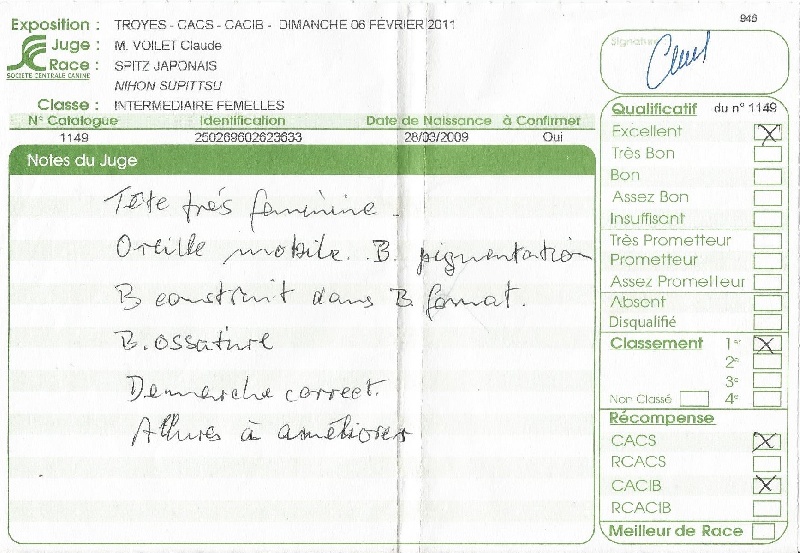 Exposition : TROYES - CACS - CACIB - DIMANCHE 06 FÉVRIER 2011
946
Juge : M. VOILET Claude
Race : SPITZ JAPONAIS
SOCIÉTÉ CENTRALE CANINE
NIHON SUPITTSU
Classe : INTERMEDIAIRE FEMELLES
N° Catalogue Identification Date de Naissance à Confirmer
1149 250269602623633 28/03/2009 Oui
Notes du Juge
Tête très feminine.
Oreille mobile. B. pigmentation
B construit dans B format.
B. ossature
Demarche correct.
Allures à améliorer
Signature
Qualificatif du n° 1149
Excellent X
Très Bon
Bon
Assez Bon
Insuffisant
Très Prometteur
Prometteur
Assez Prometteur
Absent
Disqualifié
Classement 1er X
2e
3e
Non Classé 4e
Récompense
CACS X
RCACS
CACIB X
RCACIB
Meilleur de Race